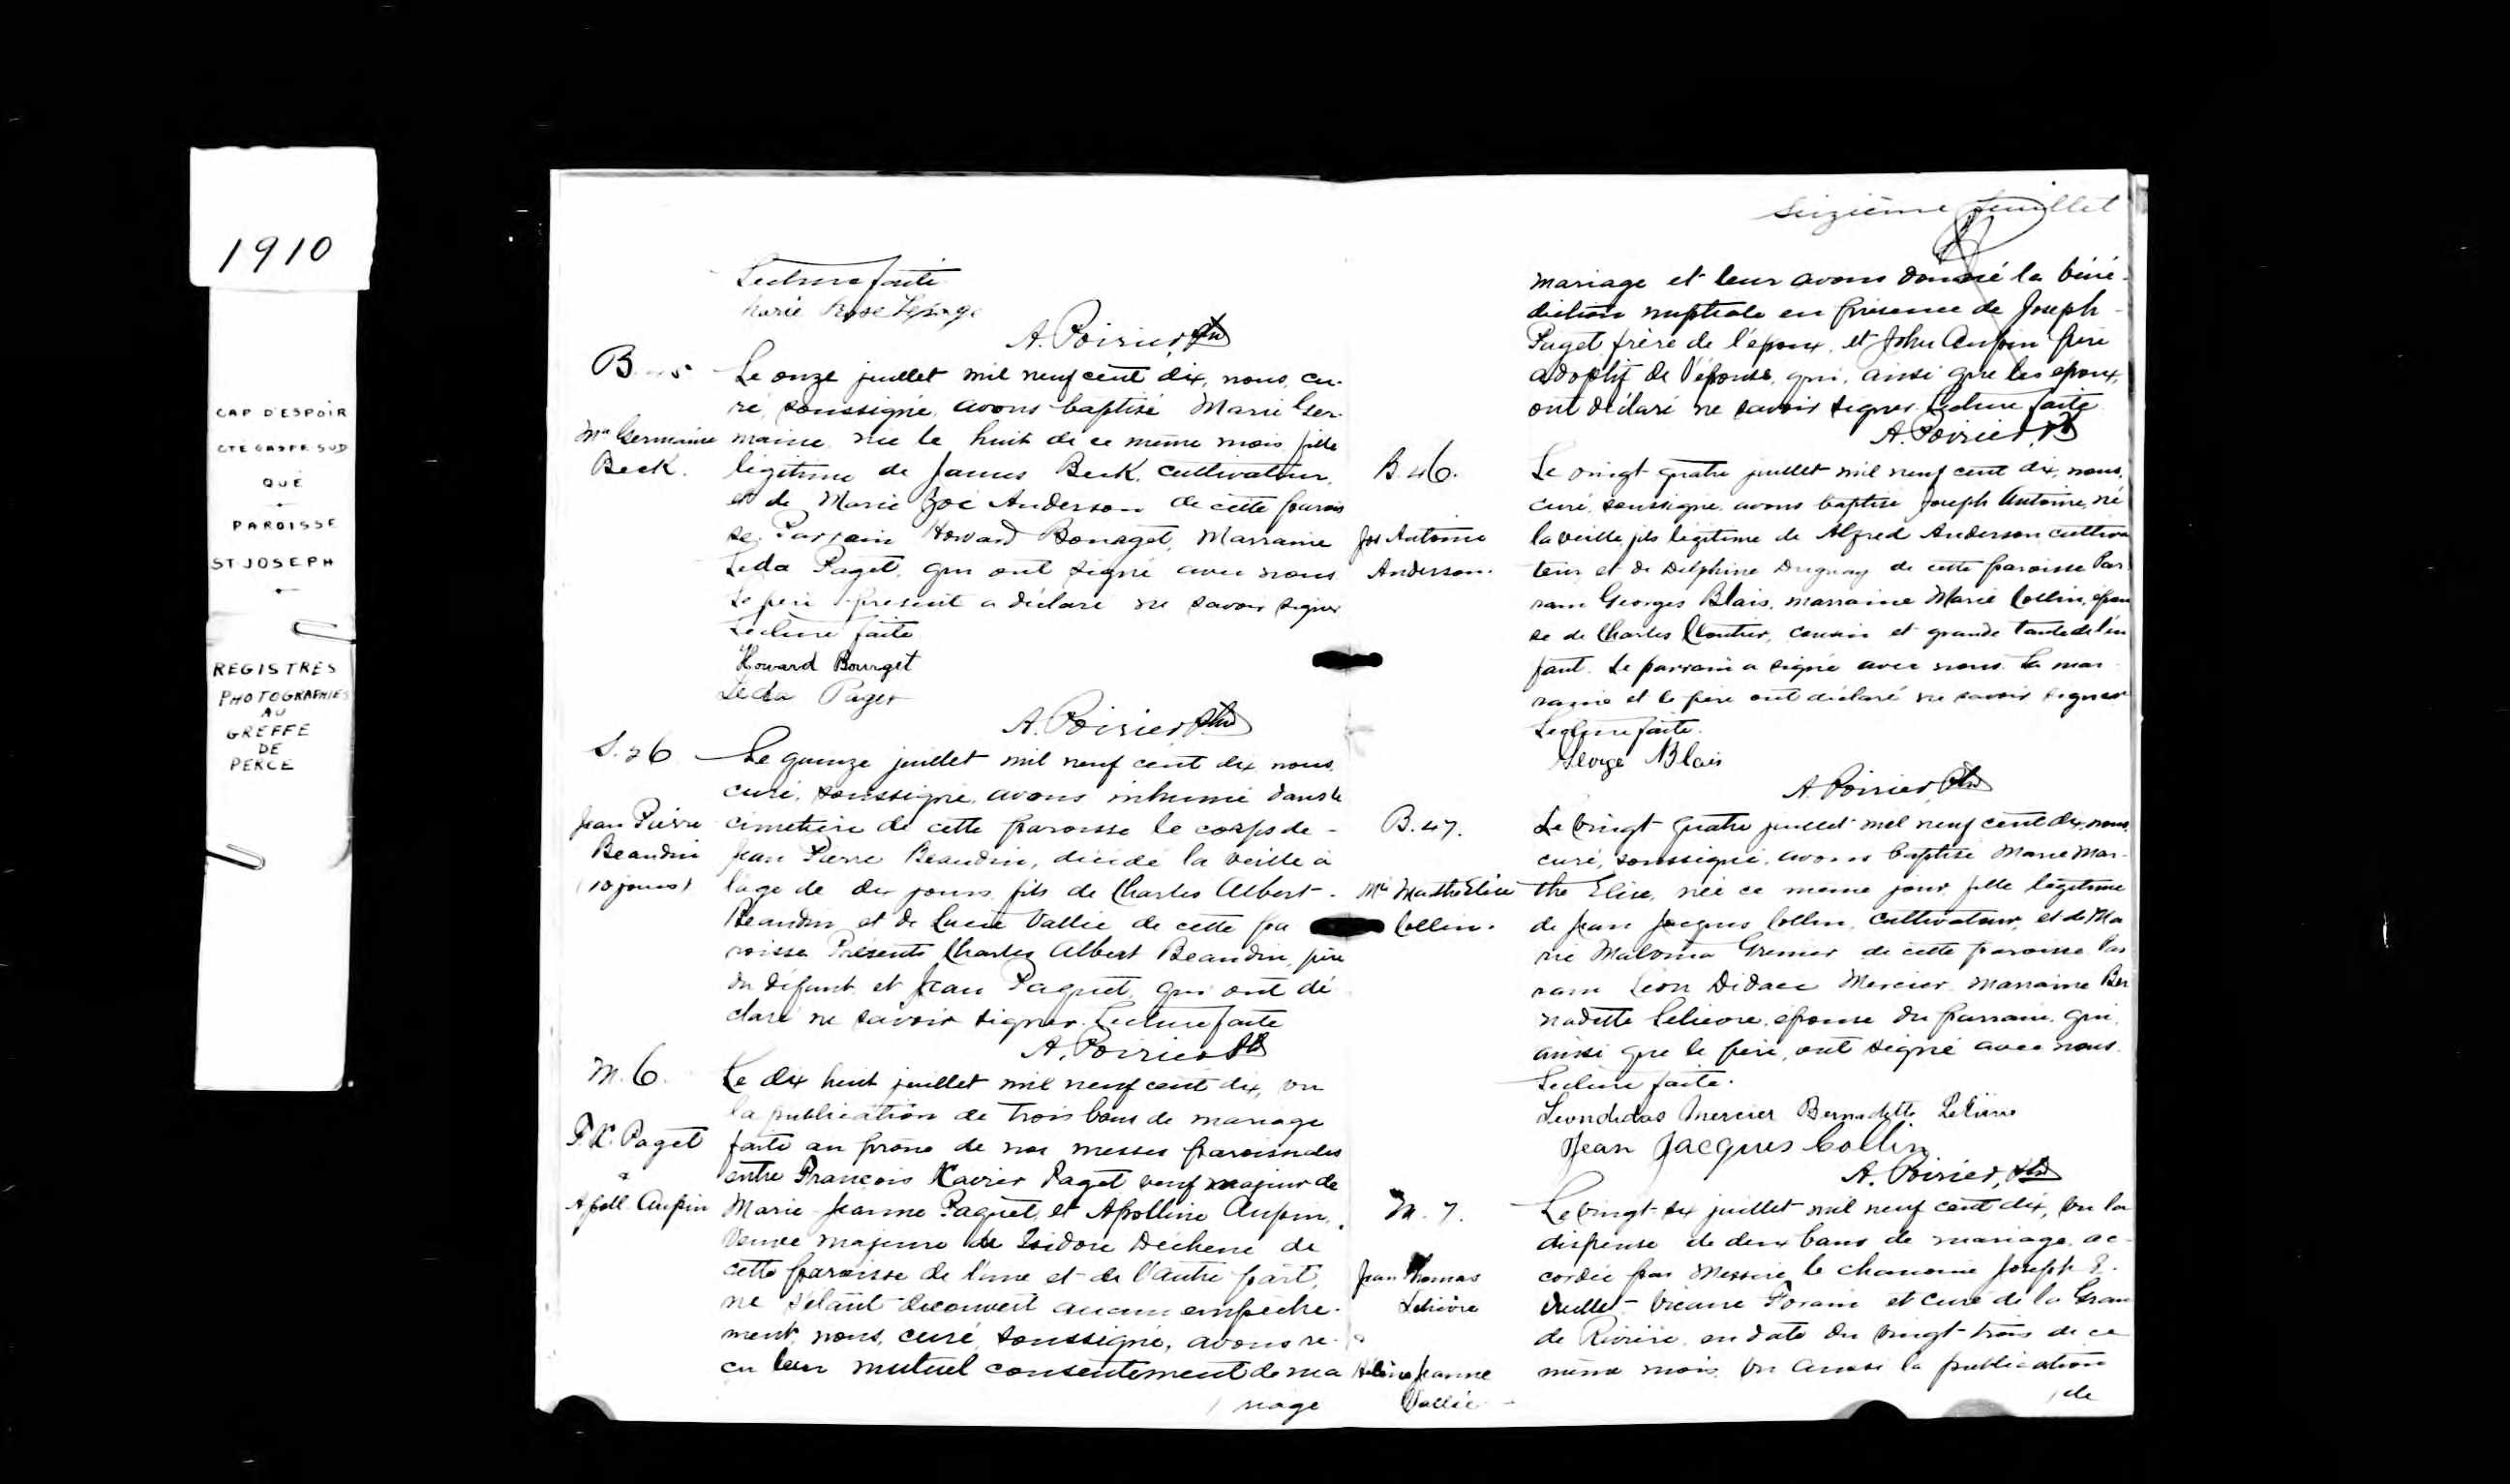 1910
CAP D'ESPOIR
CTE GASPE SUD
QUÉ
PAROISSE
ST JOSEPH
REGISTRES
PHOTOGRAPHIES
AU
GREFFE
DE
PERCE
Lecture faite
Marie Rose Lepage
A. Poirier, Ptre
B.
Le onze juillet mil neuf cent dix, nous, cu-
ré, soussigné, avons baptisé Marie Ger-
Me Germaine
maine, née le huit de ce même mois, fille
Beck.
légitime de James Beck, cultivateur,
et de Marie Zoé Anderson de cette parois
se. Parrain Howard Bourget, Marraine
Leda Paget, qui ont signé avec nous
Le père présent a déclaré ne savoir signer
Lecture faite
Howard Bourget
Leda Paget
A. Poirier Ptre
S. 26
Le quinze juillet mil neuf cent dix, nous,
curé, soussigné, avons inhumé dans le
Jean Pierre
cimetière de cette paroisse le corps de
Beaudin
Jean Pierre Beaudin, décédé la veille à
(10 jours)
l'âge de dix jours, fils de Charles Albert
Beaudin et de Lucie Vallée de cette pa
roisse. Présents Charles Albert Beaudin, père
du défunt et Jean Paquet, qui ont dé
claré ne savoir signer. Lecture faite
A. Poirier Ptre
M. 6.
Le dix huit juillet mil neuf cent dix, vu
la publication de trois bans de mariage
F. X. Paget
faite au prône de nos messes paroissiales
&
entre François Xavier Paget veuf majeur de
Apoll. Aupin
Marie-Jeanne Paquet, et Apolline Aupin,
veuve majeure de Isidore Dechene de
cette paroisse de l'une et de l'autre part,
ne s'étant découvert aucun empêche-
ment, nous, curé, soussigné, avons re-
çu leur mutuel consentement de ma
/ riage
Seizième feuillet
mariage et leur avons donné la béné-
diction nuptiale en présence de Joseph
Paget frère de l'époux, et John Aupin frère
adoptif de l'épouse, qui, ainsi que les époux,
ont déclaré ne savoir signer. Lecture faite
A. Poirier, Ptre
B. 46.
Le vingt quatre juillet mil neuf cent dix, nous,
curé, soussigné, avons baptisé Joseph Antoine, né
Jos Antoine
la veille, fils légitime de Alfred Anderson, cultiva
Anderson.
teur et de Delphine Duguay de cette paroisse. Par
rain Georges Blais, marraine Marie Collin, épou
se de Charles Cloutier, cousin et grande tante de l'en
fant. Le parrain a signé avec nous. La mar
raine et le père ont déclaré ne savoir signer
Lecture faite.
George Blais
A. Poirier, Ptre
B. 47.
Le vingt quatre juillet mil neuf cent dix, nous,
curé, soussigné, avons baptisé Marie Mar-
Me Marthe Elise
the Elise, née ce même jour, fille légitime
Collin.
de Jean Jacques Collin, cultivateur, et de Ma
rie Malvina Grenier de cette paroisse. Par
rain Léon Didace Mercier, marraine Ber
nadette Lelievre, épouse du parrain, qui,
ainsi que le père, ont signé avec nous.
Lecture faite.
Leondidas Mercier Bernadette Lelievre
Jean Jacques Collin
A. Poirier, Ptre
M. 7.
Le vingt-six juillet mil neuf cent dix, vu la
dispense de deux bans de mariage, ac-
Jean Thomas
cordée par Messire le chanoine Joseph
Lelièvre
vicaire Forain et curé de la Gran
&
de Rivière, en date du vingt-trois de ce
Hélène Jeanne
même mois, vu aussi la publication
Vallée
/ de